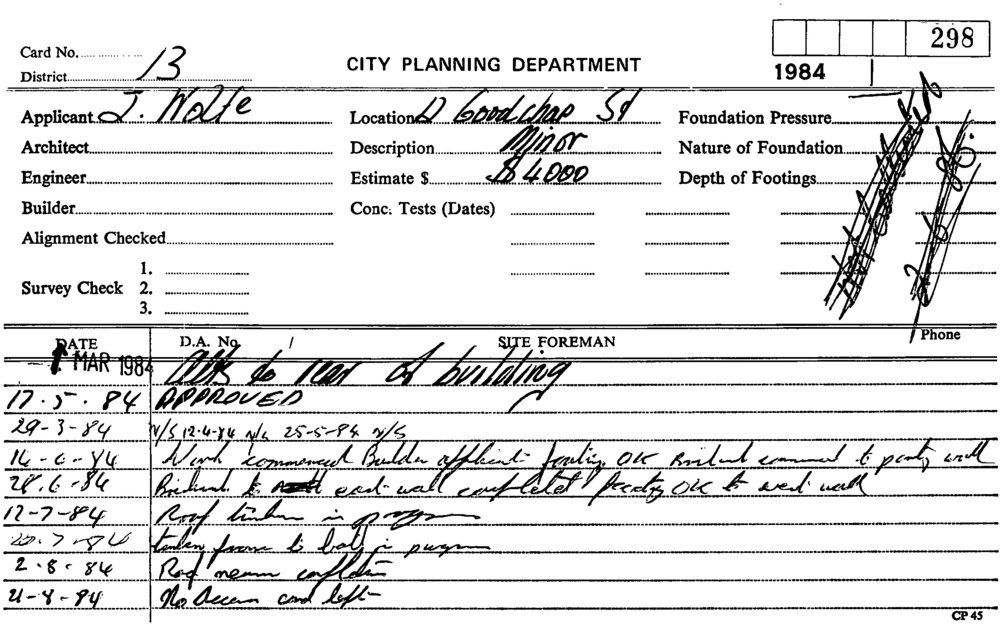 298
Card No.
District 13
CITY PLANNING DEPARTMENT
1984
Applicant J. Wolfe
Location D Goodchap St
Foundation Pressure
Architect
Description Minor
Nature of Foundation
Engineer
Estimate $ $4000
Depth of Footings
Builder
Conc. Tests (Dates)
Alignment Checked
Survey Check 1.
2.
3.
DATE D.A. No. / SITE FOREMAN Phone
1 MAR 1984 Alts to rear of building
17.5.84 APPROVED
29-3-84 N/S 12.4.84 N/S 25-5-84 N/S
14-6-84 Work commenced Builder applicant footing OK Brickwork commenced to party wall
28.6-84 Brickwork to east wall completed footing OK to west wall
12-7-84 Roof timbers in progress
20.7.84 timber frame to in progress
2.8.84 Roof completed
21-8-84 No Access card left
CP 45